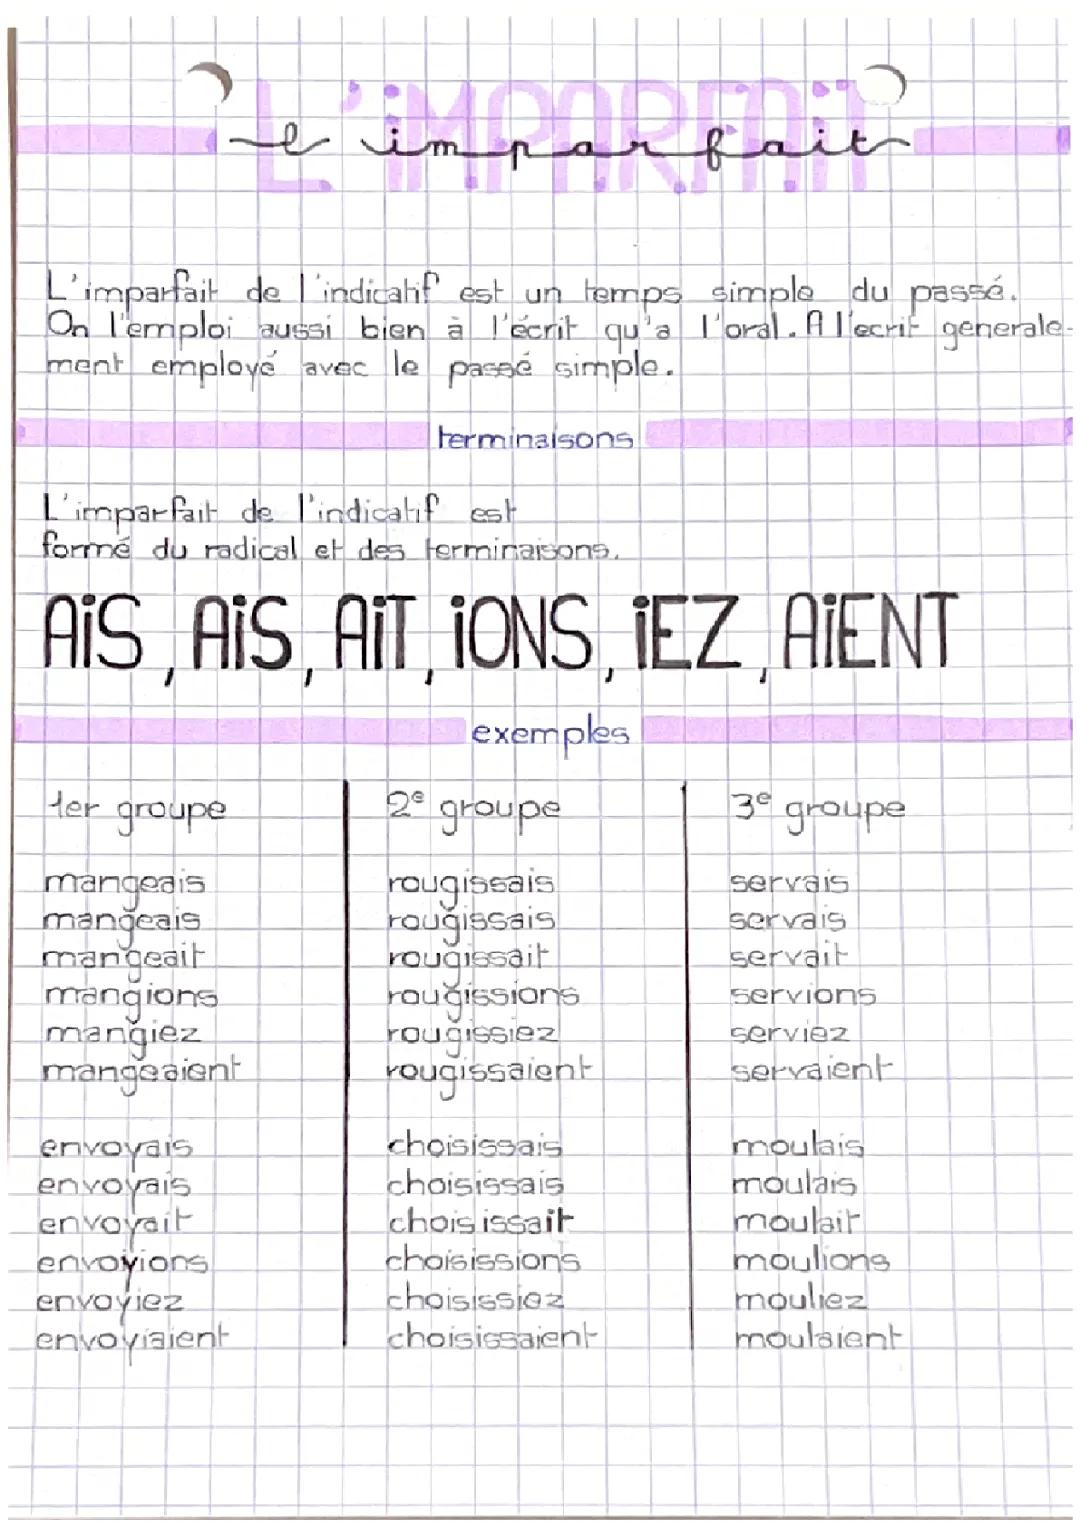 L'iMPARFAiT
l'imparfait
L'imparfait de l'indicatif est un temps simple du passé.
On l'emploi aussi bien à l'écrit qu'a l'oral. A l'ecrit generale-
ment employé avec le passé simple.
terminaisons
L'imparfait de l'indicatif est
formé du radical et des terminaisons.
AiS, AiS, AiT, iONS, iEZ, AiENT
exemples
1er groupe 2e groupe 3e groupe
mangeais rougissais servais
mangeais rougissais servais
mangeait rougissait servait
mangions rougissions servions
mangiez rougissiez serviez
mangeaient rougissaient servaient
envoyais choisissais moulais
envoyais choisissais moulais
envoyait choisissait moulait
envoyions choisissions moulions
envoyiez choisissiez mouliez
envoyiaient choisissaient moulaient